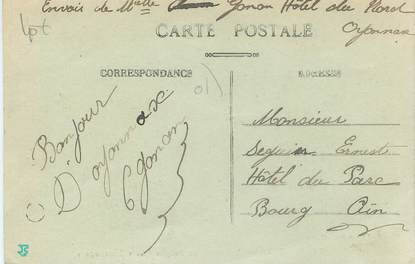 Envoi de Melle Gonon Hôtel du Nord
Oyonnax
CARTE POSTALE
CORRESPONDANCE
ADRESSE
Bonjour
D'oyonnax
Gonon
Monsieur
Seguin Ernest
Hôtel du Parc
Bourg Ain